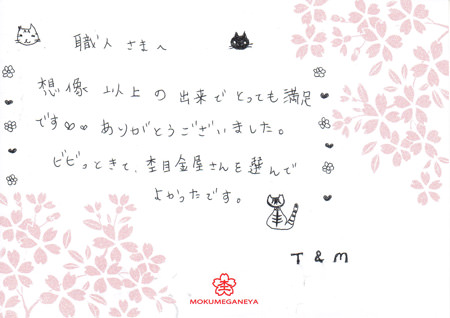 職人さまへ
想像以上の出来でとっても満足
です♡♡ ありがとうございました。
ビビッときて、杢目金屋さんを選んで
よかったです。
T & M
MOKUMEGANEYA